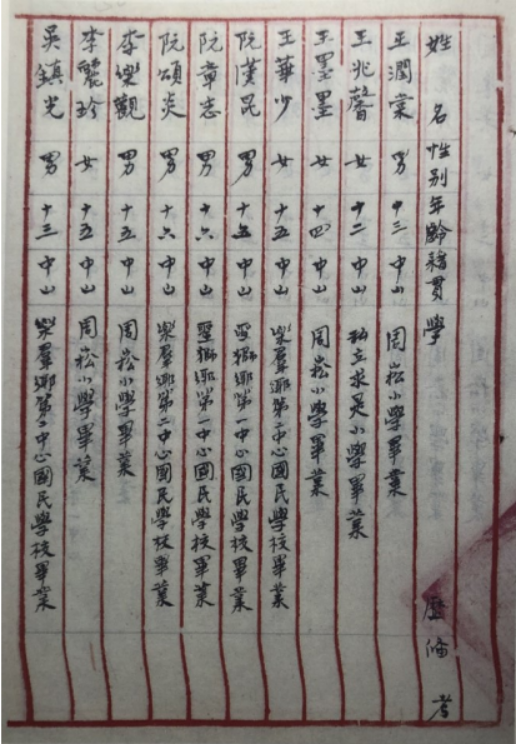 姓名 性别 年齡 籍貫 學歷 俻考
王潤棠 男 十三 中山 周崧小學畢業
王兆馨 女 十二 中山 私立求是小學畢業
王墨墨 女 十四 中山 周崧小學畢業
王華少 女 十五 中山 樂羣鄉第二中心國民學校畢業
阮漢昆 男 十五 中山 聖獅鄉第一中心國民學校畢業
阮章志 男 十六 中山 聖獅鄉第一中心國民學校畢業
阮頌炎 男 十六 中山 樂羣鄉第二中心國民學校畢業
李樂觀 男 十五 中山 周崧小學畢業
李麗珍 女 十五 中山 周崧小學畢業
吳鎮光 男 十三 中山 樂羣鄉第二中心國民學校畢業